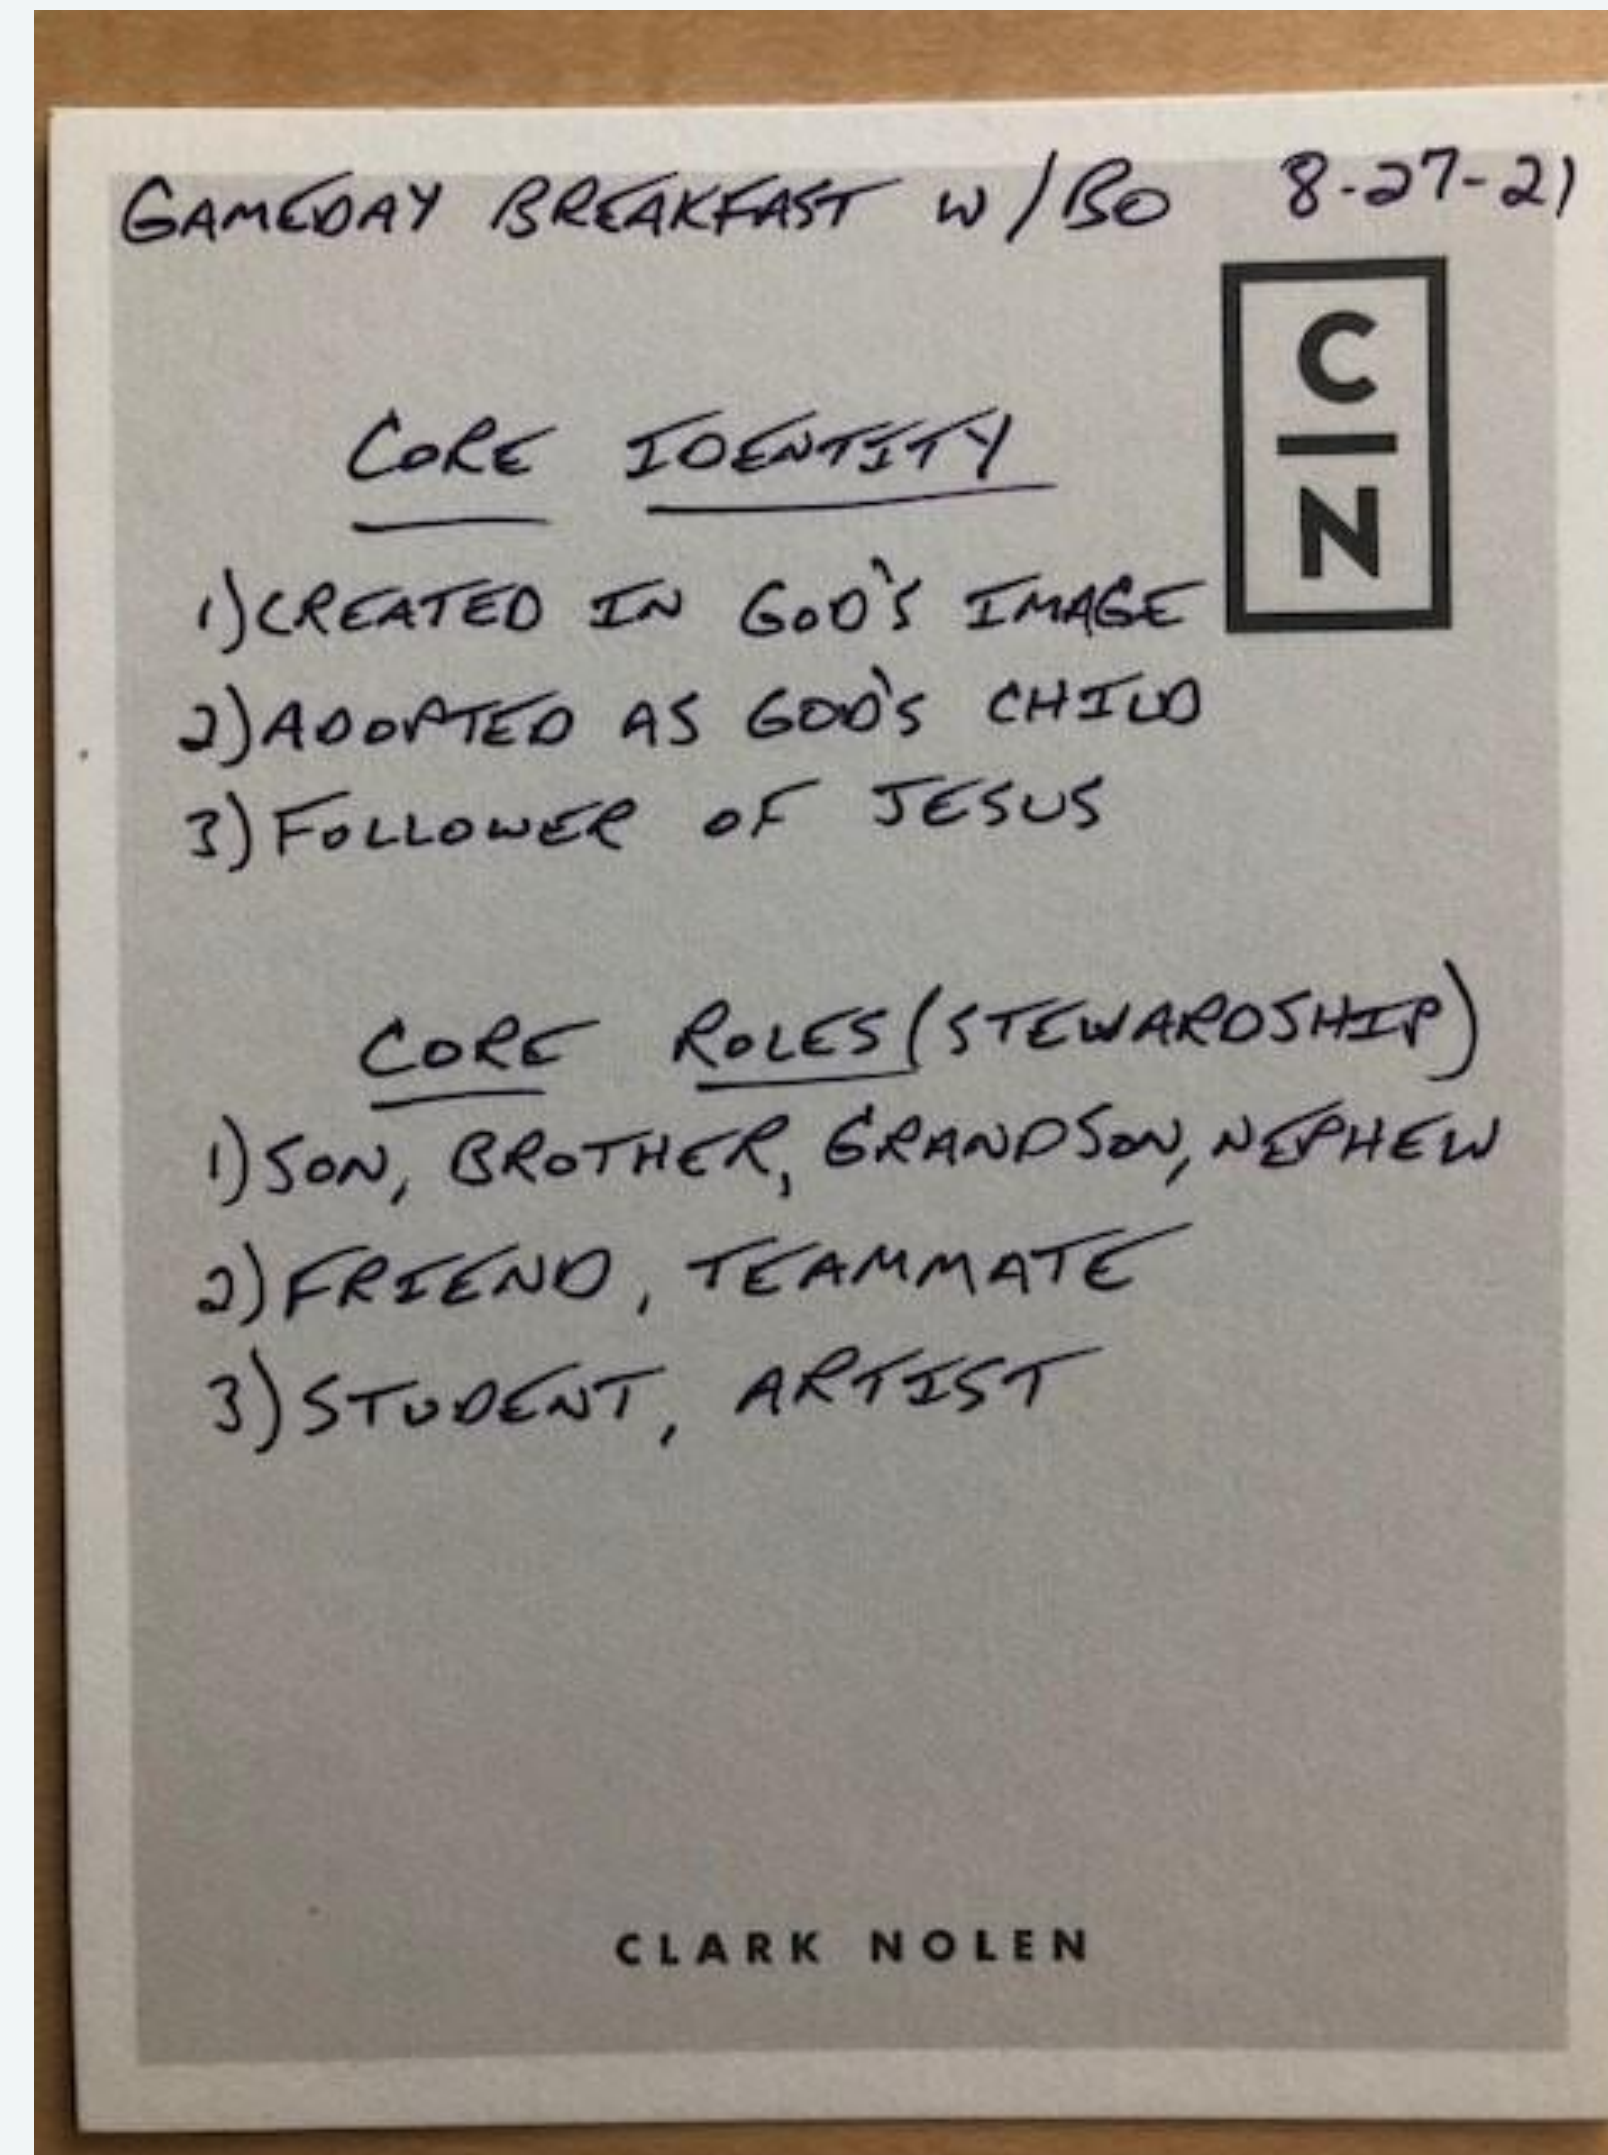 GAMEDAY BREAKFAST W/BO 8-27-21
C
N
CORE IDENTITY
1) CREATED IN GOD'S IMAGE
2) ADOPTED AS GOD'S CHILD
3) FOLLOWER OF JESUS
CORE ROLES (STEWARDSHIP)
1) SON, BROTHER, GRANDSON, NEPHEW
2) FRIEND, TEAMMATE
3) STUDENT, ARTIST
CLARK NOLEN